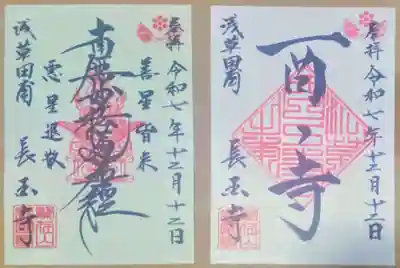 奉拝
令和七年十二月十二日
善星皆来
南無妙法蓮華經
悪星退散
浅草田甫
長国寺
奉拝
令和七年十二月十二日
浅草田甫
長国寺